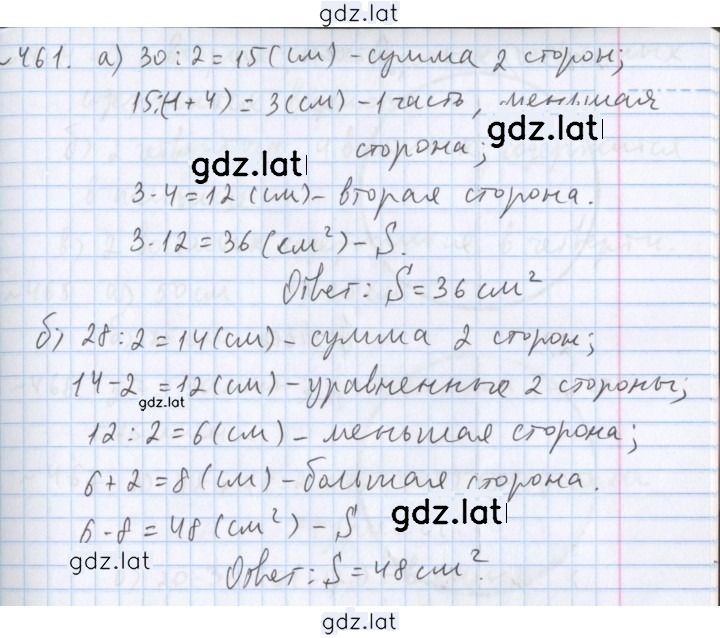 gdz.lat
№461. а) 30 : 2 = 15 (см) – сумма 2 сторон;
15:(1+4) = 3(см) – 1 часть, меньшая
gdz.lat
gdz.lat
сторона;
3·4=12 (см) – вторая сторона.
3·12=36(см²) – S.
Ответ: S=36 см²
б) 28 : 2 = 14(см) – сумма 2 сторон;
14-2 =12(см) – уравненные 2 стороны;
gdz.lat
12 : 2 = 6(см) – меньшая сторона;
6+2=8(см) – большая сторона.
6·8=48(см²) – S
gdz.lat
gdz.lat
Ответ: S=48см².
gdz.lat